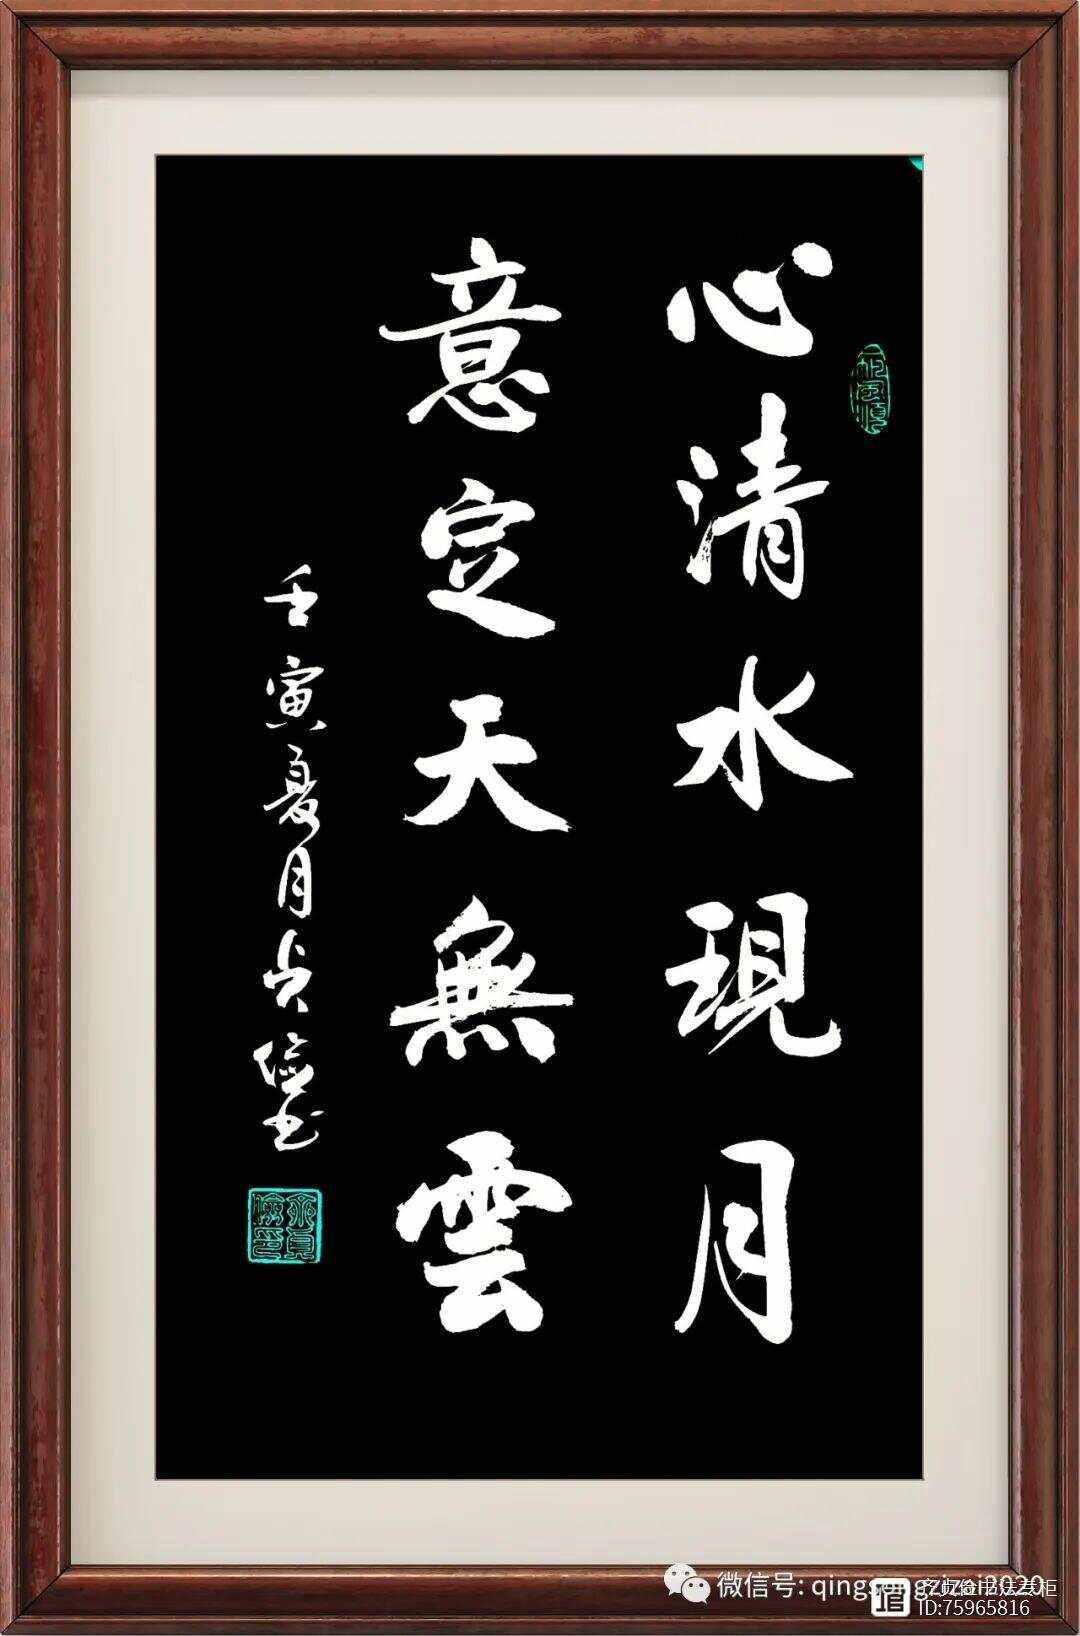 心清水現月
意定天無雲
壬寅夏月贞俭书
微信号: qingsongzizai2020
ID:75965816